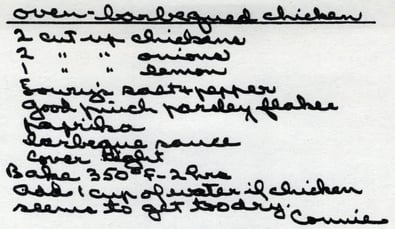 oven-barbequed chicken
2 cut-up chickens
2 " " onions
1 " " lemon
Lowry's salt & pepper
good pinch parsley flakes
paprika
barbeque sauce
Cover tight
Bake 350° F - 2 hrs
add 1 cup of water if chicken
seems to get too dry.
Connie